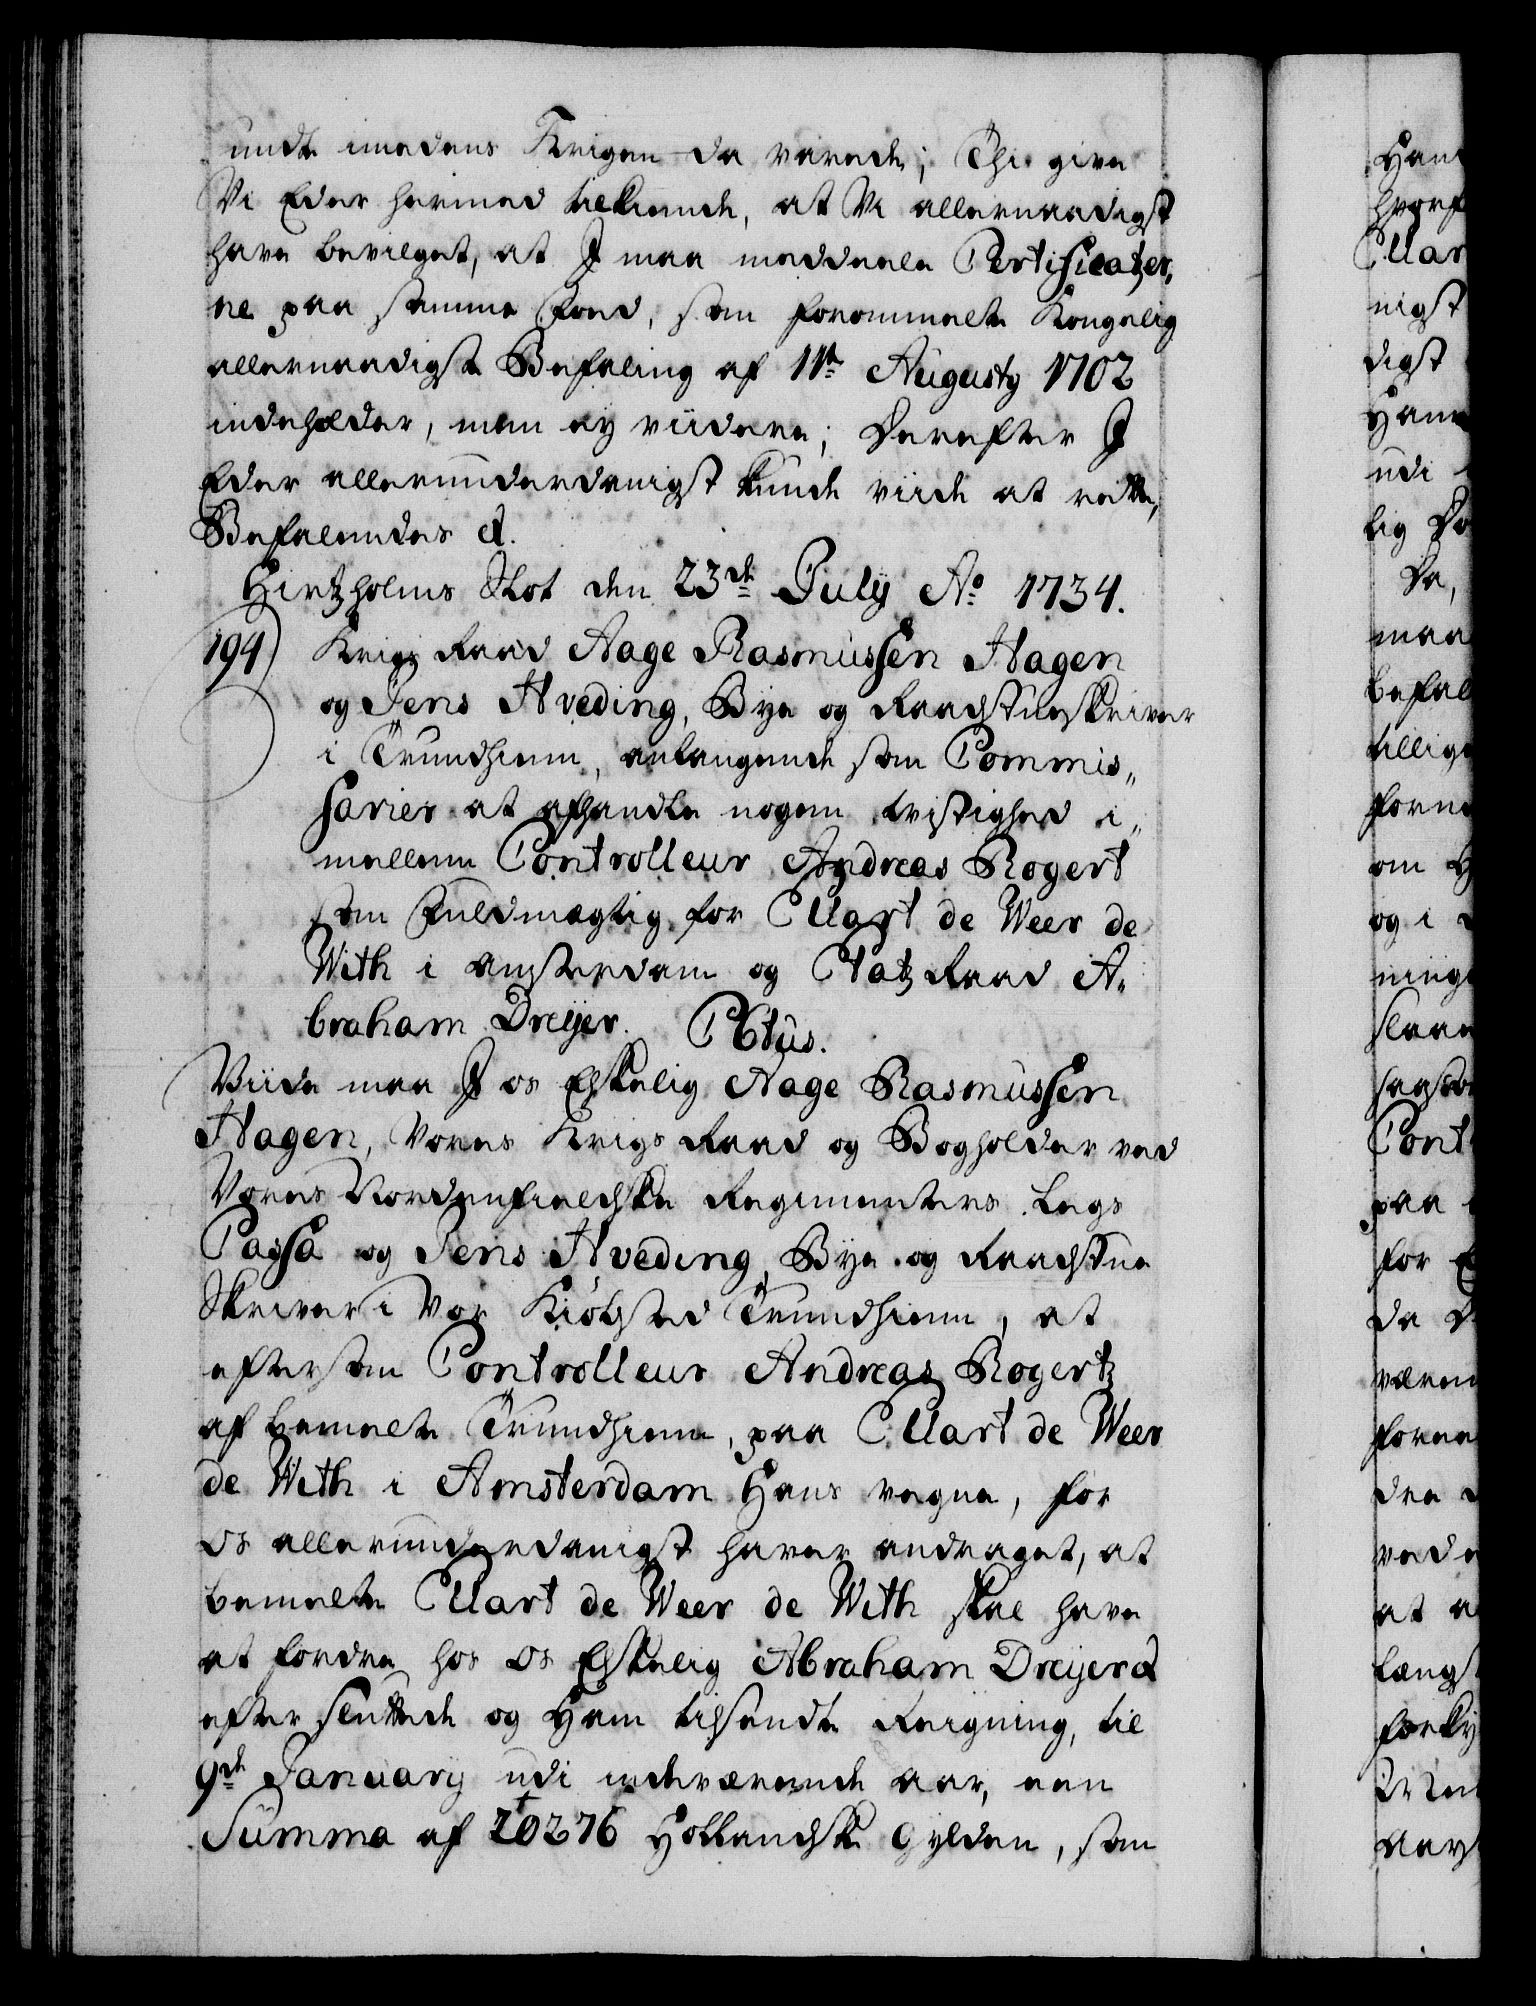 undt imedens Krigen da varede; Thi give
Vi Eder hermed tilkiende, at Vi allernaadigst
have bevilget, at I maa meddeele Certificatzer,
ne paa samme Foed, som forommelte Kongelig
allernaadigste Befaling af 11te Augusty 1702
indeholder, men ey viidere; Derefter I
Eder allerunderdanigst kunde viide at rette,
Befalendes &.
Hirtzholms Slot den 23de July Ao 1734.
194) Krigs Raad Aage Rasmussen Hagen
og Jens Hveding, Bye og Raadstueskriver
i Trundhiem, anlangende som Commis„
sarier at afhandle nogen tvistighed i„
mellem Controlleur Andreas Rogert
som Fuldmægtig for Cllart de Weer de
With i Amsterdam og Etatz Raad A„
braham Dreyer. C 6tus.
Viide maa I os Elskelig Aage Rasmussen
Hagen, Vores Krigs Raad og Bogholder ved
Vores Nordenfieldske Regimenters Legs
Cassa og Jens Hveding, Bye og Raadstue
Skriver i Vor Kiøbsted Trundhiem, at
eftersom Controlleur Andreas Rogertz
af bemelte Trundhiem, paa Cllart de Weer
de With i Amsterdam Hans vegne, for
Os allerunderdanigst haver andraget, at
bemelte Cllart de Weer de With skal have
at fordre hos Os Elskelig Abraham Dreyer &
efter sluttede og Ham tilsendte Reigning, til
9de January udi indeværende aar, een
Summa af 20276 Hollandske Gylden, som